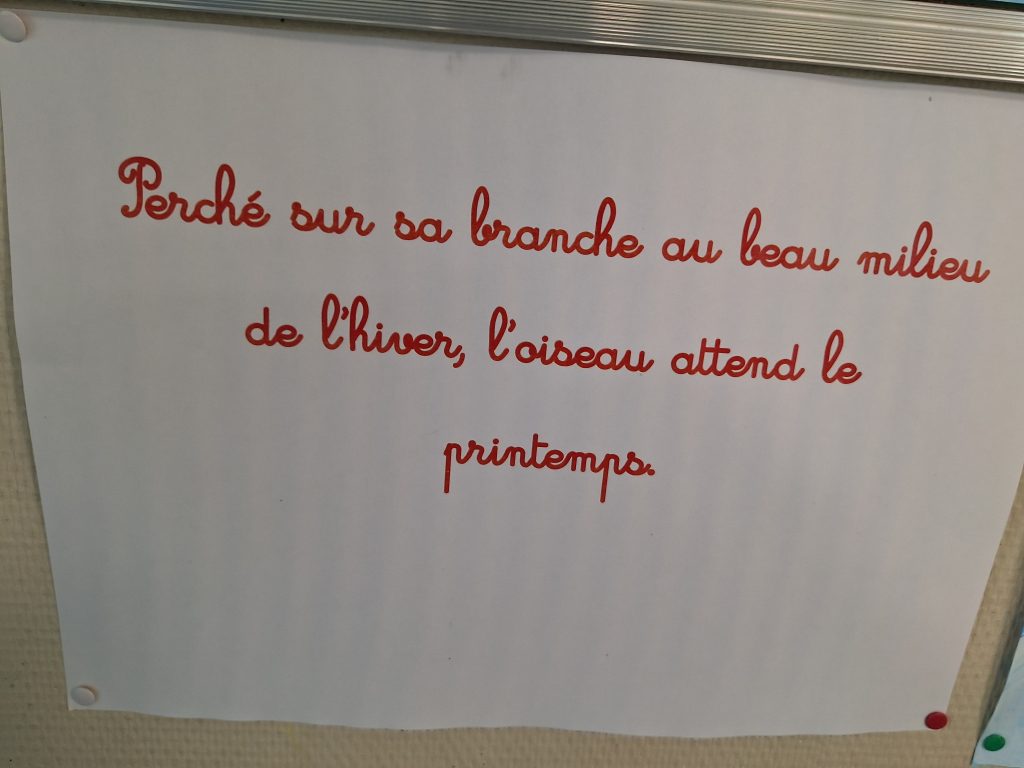 Perché sur sa branche au beau milieu
de l'hiver, l'oiseau attend le
printemps.